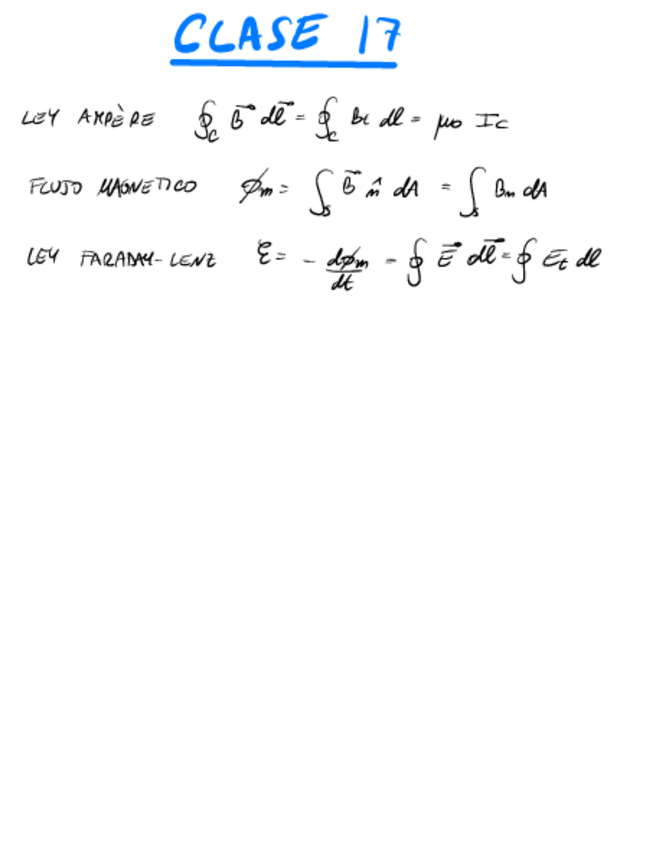 CLASE 17
LEY AMPÈRE ∮_C B⃗ dl⃗ = ∮_C Bt dl = μ0 Ic
FLUJO MAGNETICO ϕm = ∫_S B⃗ n̂ dA = ∫_S Bn dA
LEY FARADAY-LENZ ℰ = - dϕm/dt = ∮ E⃗ dl⃗ = ∮ Et dl